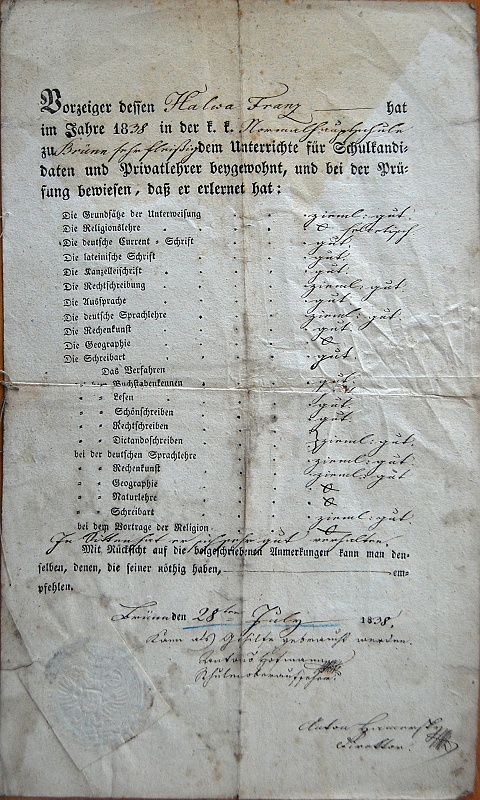 Vorzeiger dessen Halwa Franz hat
im Jahre 1838 in der k. k. Normalhauptschule
zu Brünn sehr fleißig dem Unterrichte für Schulkandi-
daten und Privatlehrer beygewohnt, und bei der Prü-
fung bewiesen, daß er erlernet hat:
Die Grundsätze der Unterweisung zieml: gut.
Die Religionslehre
Die deutsche Current-Schrift gut.
Die lateinische Schrift gut.
Die Kanzleischrift gut.
Die Rechtschreibung zieml: gut.
Die Aussprache gut.
Die deutsche Sprachlehre zieml: gut.
Die Rechenkunst gut
Die Geographie
Die Schreibart gut.
Das Verfahren
" " Buchstabenkennen gut.
" " Lesen gut.
" " Schönschreiben gut.
" " Rechtschreiben
" " Dictandoschreiben zieml: gut.
bei der deutschen Sprachlehre zieml: gut.
" " Rechenkunst zieml: gut
" " Geographie
" " Naturlehre
" " Schreibart zieml: gut.
bei dem Vortrage der Religion
In Sitten hat er sich sehr gut verhalten.
Mit Rücksicht auf die beigeschriebenen Anmerkungen kann man den-
selben, denen, die seiner nöthig haben, em-
pfehlen.
Brünn den 28ten July 1838.
Kann als Gehilfe gebraucht werden.
Schulenoberaufseher.
Anton
Director.